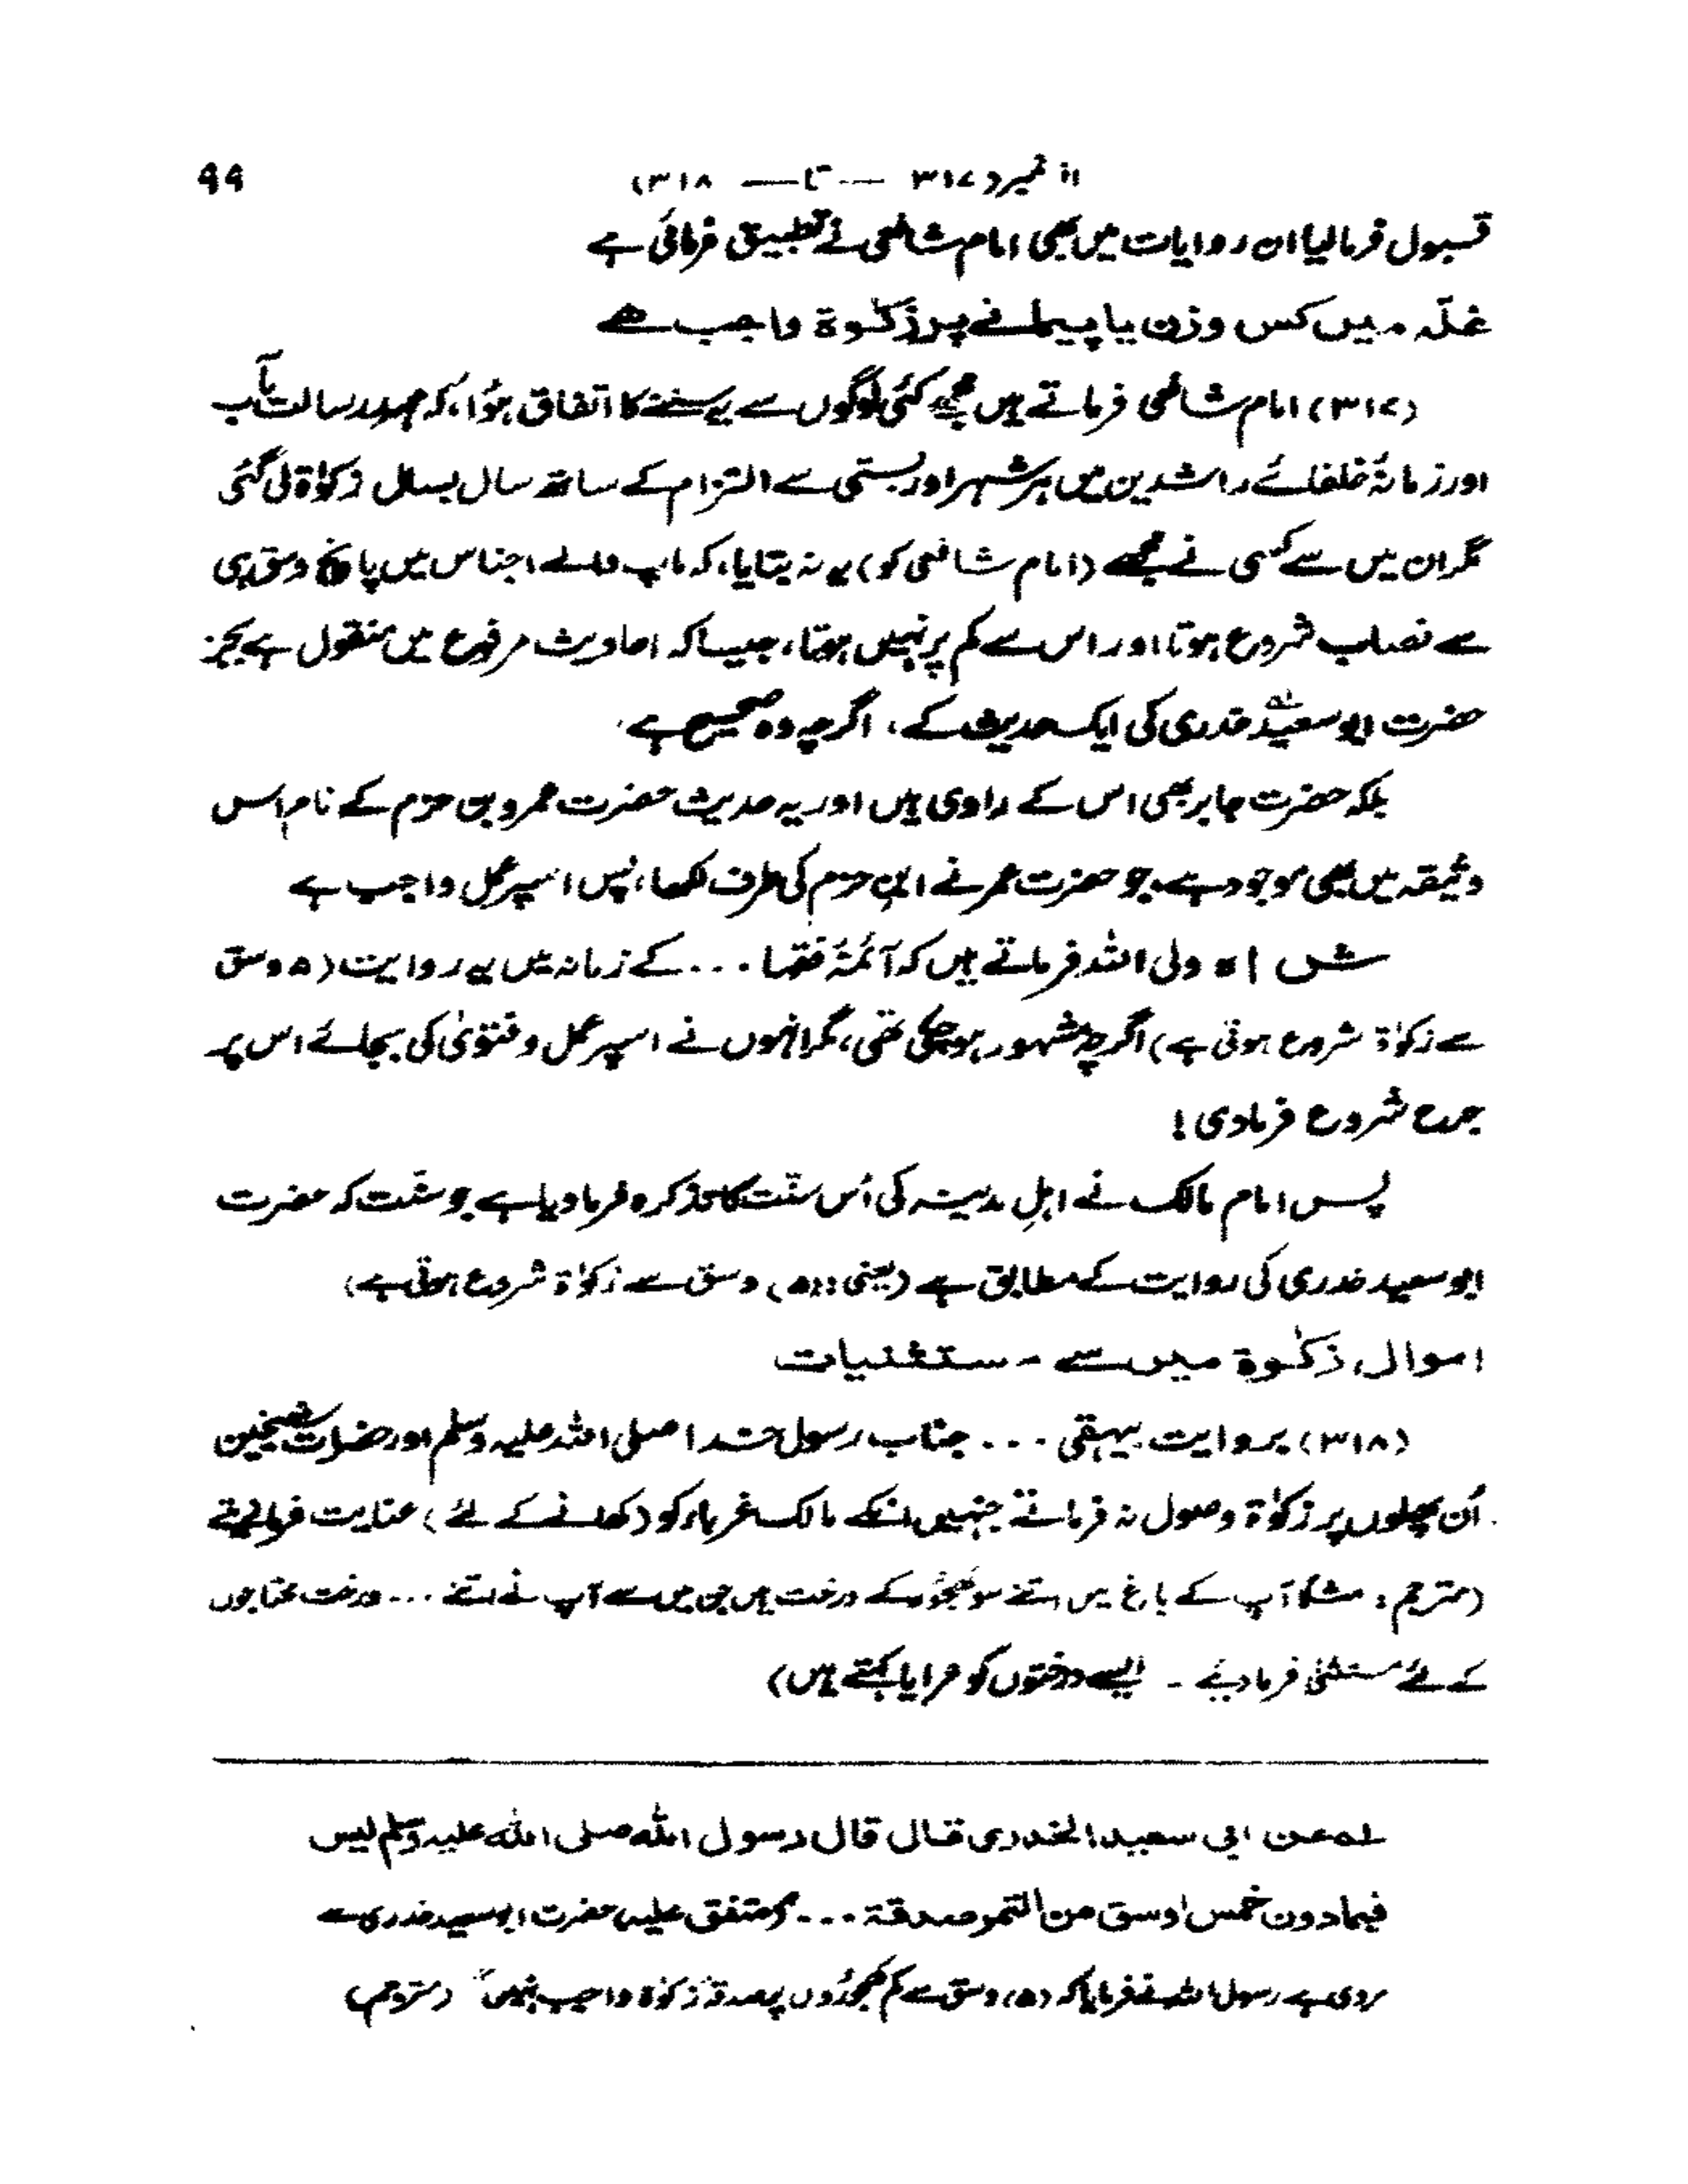 از نمبر (۳۱۷ — تا — ۳۱۸) ۹۹
قبول فرمالیا ان روایات میں بھی امام شافعی نے تطبیق فرمائی ہے
غلّہ میں کس وزن یا پیمانے پر زکٰوۃ واجب ہے
(۳۱۷) امام شافعی فرماتے ہیں مجھے کئی لوگوں سے یہ سننے کا اتفاق ہؤا، کہ عہد رسالت مآب
اور زمانۂ خلفائے راشدین میں ہر شہر اور بستی سے التزام کے ساتھ سال بسال زکوٰۃ لی گئی
مگر ان میں سے کسی نے مجھے (امام شافعی کو) یہ نہ بتایا، کہ ماپ والے اجناس میں پانچ وسق ہی
سے نصاب شروع ہوتا اور اس سے کم پر نہیں ہوتا، جیسا کہ احادیث مرفوع میں منقول ہے بجز
حضرت ابو سعیدؓ خدری کی ایک حدیث کے، اگرچہ وہ صحیح ہے
بلکہ حضرت جابر بھی اس کے راوی ہیں اور یہ حدیث حضرت عمرو بن حزم کے نام اس
وثیقہ میں بھی موجود ہے، جو حضرت عمر نے ابن حزم کی طرف لکھا، پس اسپر عمل واجب ہے
ش اہ ولی اللہ فرماتے ہیں کہ آئمۂ فقہا ... کے زمانہ میں یہ روایت (۵ وسق
سے زکوٰۃ شروع ہوتی ہے) اگرچہ مشہور ہو چکی تھی، مگر انہوں نے اسپر عمل و فتویٰ کی بجائے اس پر
جرح شروع فرمادی!
پس امام مالک نے اہلِ مدینہ کی اُس سنّت کا تذکرہ فرما دیا ہے جو سنّت کہ حضرت
ابو سعید خدری کی روایت کے مطابق ہے (یعنی :(۵) وسق سے زکوٰۃ شروع ہوتی ہے)
اموال زکٰوۃ میں سے مستثنیات
(۳۱۸) بروایت بیہقی ... جناب رسول خدا صلی اللہ علیہ وسلم اور حضرات شیخین
اُن پھلوں پر زکوٰۃ وصول نہ فرماتے جنہیں انکے مالک غرباء کو (کھانے کے لئے) عنایت فرما دیتے
(مترجم: مثلاً آپ کے باغ میں اتنے سو کھجوُر کے درخت ہیں جن میں سے آپ نے اتنے ... درخت محتاجوں
کے لئے مستثنیٰ فرما دیئے - ایسے درختوں کو عرایا کہتے ہیں)
لہ عن ابی سعید الخدری قال قال رسول اللہ صلی اللہ علیہ وسلم لیس
فیما دون خمس اوسق من التمر صدقۃ ... متفق علیہ حضرت ابو سعید خدری سے
مروی ہے رسول اللہ نے فرمایا کہ (۵) وسق سے کم کھجوُروں پر صدقہ زکوٰۃ واجب نہیں" (مترجم)